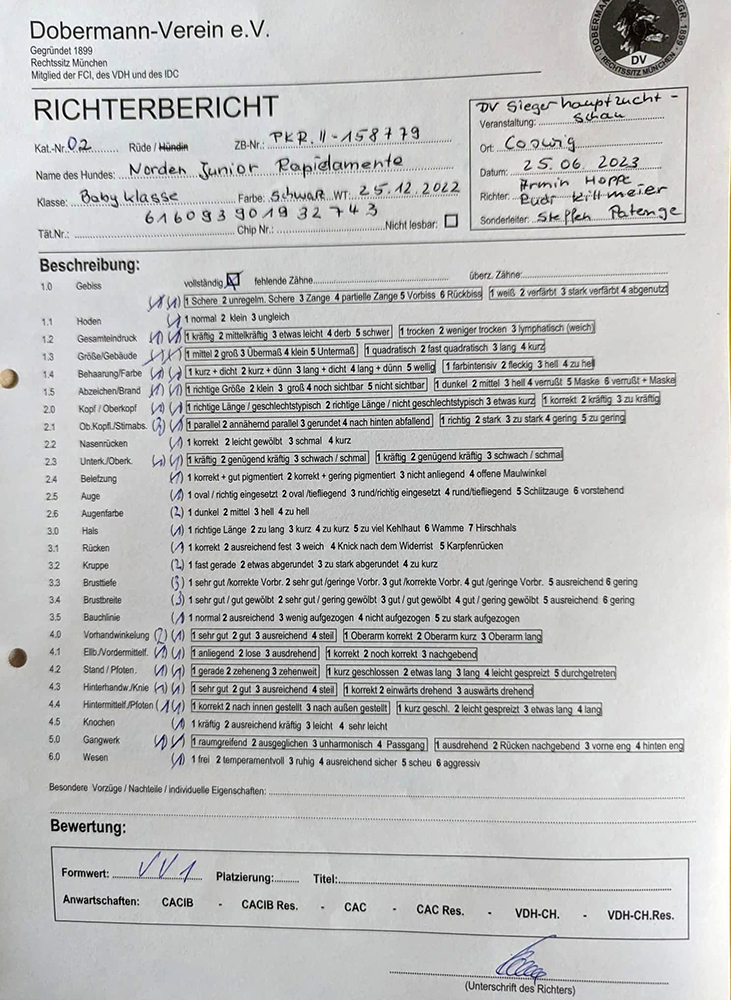 Dobermann-Verein e.V.
Gegründet 1899
Rechtssitz München
Mitglied der FCI, des VDH und des IDC
DV
RECHTSSITZ MÜNCHEN
RICHTERBERICHT
Kat.-Nr. 02 Rüde / Hündin ZB-Nr.: PKR. II-158779
Name des Hundes: Norden Junior Rapidamente
Klasse: Babyklasse Farbe: Schwar WT: 25.12.2022
616093901932743
Tät.Nr.: Chip Nr.: Nicht lesbar:
DV Siegerhauptzucht-
Veranstaltung: schau
Ort: Coswig
Datum: 25.06.2023
Armin Hoppe
Richter: Rudi Killmeier
Sonderleiter: Steffen Patenge
Beschreibung:
1.0 Gebiss vollständig fehlende Zähne überz. Zähne:
(1) (1) 1 Schere 2 unregelm. Schere 3 Zange 4 partielle Zange 5 Vorbiss 6 Rückbiss 1 weiß 2 verfärbt 3 stark verfärbt 4 abgenutzt
1.1 Hoden (1) 1 normal 2 klein 3 ungleich
1.2 Gesamteindruck (1) (1) 1 kräftig 2 mittelkräftig 3 etwas leicht 4 derb 5 schwer 1 trocken 2 weniger trocken 3 lymphatisch (weich)
1.3 Größe/Gebäude (1) (1) 1 mittel 2 groß 3 Übermaß 4 klein 5 Untermaß 1 quadratisch 2 fast quadratisch 3 lang 4 kurz
1.4 Behaarung/Farbe (1) (1) 1 kurz + dicht 2 kurz + dünn 3 lang + dicht 4 lang + dünn 5 wellig 1 farbintensiv 2 fleckig 3 hell 4 zu hell
1.5 Abzeichen/Brand (1) (1) 1 richtige Größe 2 klein 3 groß 4 noch sichtbar 5 nicht sichtbar 1 dunkel 2 mittel 3 hell 4 verrußt 5 Maske 6 verrußt + Maske
2.0 Kopf / Oberkopf (1) (1) 1 richtige Länge / geschlechtstypisch 2 richtige Länge / nicht geschlechtstypisch 3 etwas kurz 1 korrekt 2 kräftig 3 zu kräftig
2.1 Ob.Kopfl./Stirnabs. (3) (1) 1 parallel 2 annähernd parallel 3 gerundet 4 nach hinten abfallend 1 richtig 2 stark 3 zu stark 4 gering 5 zu gering
2.2 Nasenrücken (1) 1 korrekt 2 leicht gewölbt 3 schmal 4 kurz
2.3 Unterk./Oberk. (1) (1) 1 kräftig 2 genügend kräftig 3 schwach / schmal 1 kräftig 2 genügend kräftig 3 schwach / schmal
2.4 Belefzung (1) 1 korrekt + gut pigmentiert 2 korrekt + gering pigmentiert 3 nicht anliegend 4 offene Maulwinkel
2.5 Auge (1) 1 oval / richtig eingesetzt 2 oval /tiefliegend 3 rund/richtig eingesetzt 4 rund/tiefliegend 5 Schlitzauge 6 vorstehend
2.6 Augenfarbe (2) 1 dunkel 2 mittel 3 hell 4 zu hell
3.0 Hals (1) 1 richtige Länge 2 zu lang 3 kurz 4 zu kurz 5 zu viel Kehlhaut 6 Wamme 7 Hirschhals
3.1 Rücken (1) 1 korrekt 2 ausreichend fest 3 weich 4 Knick nach dem Widerrist 5 Karpfenrücken
3.2 Kruppe (2) 1 fast gerade 2 etwas abgerundet 3 zu stark abgerundet 4 zu kurz
3.3 Brusttiefe (3) 1 sehr gut /korrekte Vorbr. 2 sehr gut /geringe Vorbr. 3 gut /korrekte Vorbr. 4 gut /geringe Vorbr. 5 ausreichend 6 gering
3.4 Brustbreite (3) 1 sehr gut / gut gewölbt 2 sehr gut / gering gewölbt 3 gut / gut gewölbt 4 gut / gering gewölbt 5 ausreichend 6 gering
3.5 Bauchlinie (1) 1 normal 2 ausreichend 3 wenig aufgezogen 4 nicht aufgezogen 5 zu stark aufgezogen
4.0 Vorhandwinkelung (2) (1) 1 sehr gut 2 gut 3 ausreichend 4 steil 1 Oberarm korrekt 2 Oberarm kurz 3 Oberarm lang
4.1 Ellb./Vordermittelf. (1) (1) 1 anliegend 2 lose 3 ausdrehend 1 korrekt 2 noch korrekt 3 nachgebend
4.2 Stand / Pfoten. (1) (1) 1 gerade 2 zeheneng 3 zehenweit 1 kurz geschlossen 2 etwas lang 3 lang 4 leicht gespreizt 5 durchgetreten
4.3 Hinterhandw./Knie (1) (1) 1 sehr gut 2 gut 3 ausreichend 4 steil 1 korrekt 2 einwärts drehend 3 auswärts drehend
4.4 Hintermittelf./Pfoten (1) (1) 1 korrekt 2 nach innen gestellt 3 nach außen gestellt 1 kurz geschl. 2 leicht gespreizt 3 etwas lang 4 lang
4.5 Knochen (1) 1 kräftig 2 ausreichend kräftig 3 leicht 4 sehr leicht
5.0 Gangwerk (1) (1) 1 raumgreifend 2 ausgeglichen 3 unharmonisch 4 Passgang 1 ausdrehend 2 Rücken nachgebend 3 vorne eng 4 hinten eng
6.0 Wesen (1) 1 frei 2 temperamentvoll 3 ruhig 4 ausreichend sicher 5 scheu 6 aggressiv
Besondere Vorzüge / Nachteile / individuelle Eigenschaften:
Bewertung:
Formwert: VV1 Platzierung: Titel:
Anwartschaften: CACIB - CACIB Res. - CAC - CAC Res. - VDH-CH. - VDH-CH.Res.
(Unterschrift des Richters)